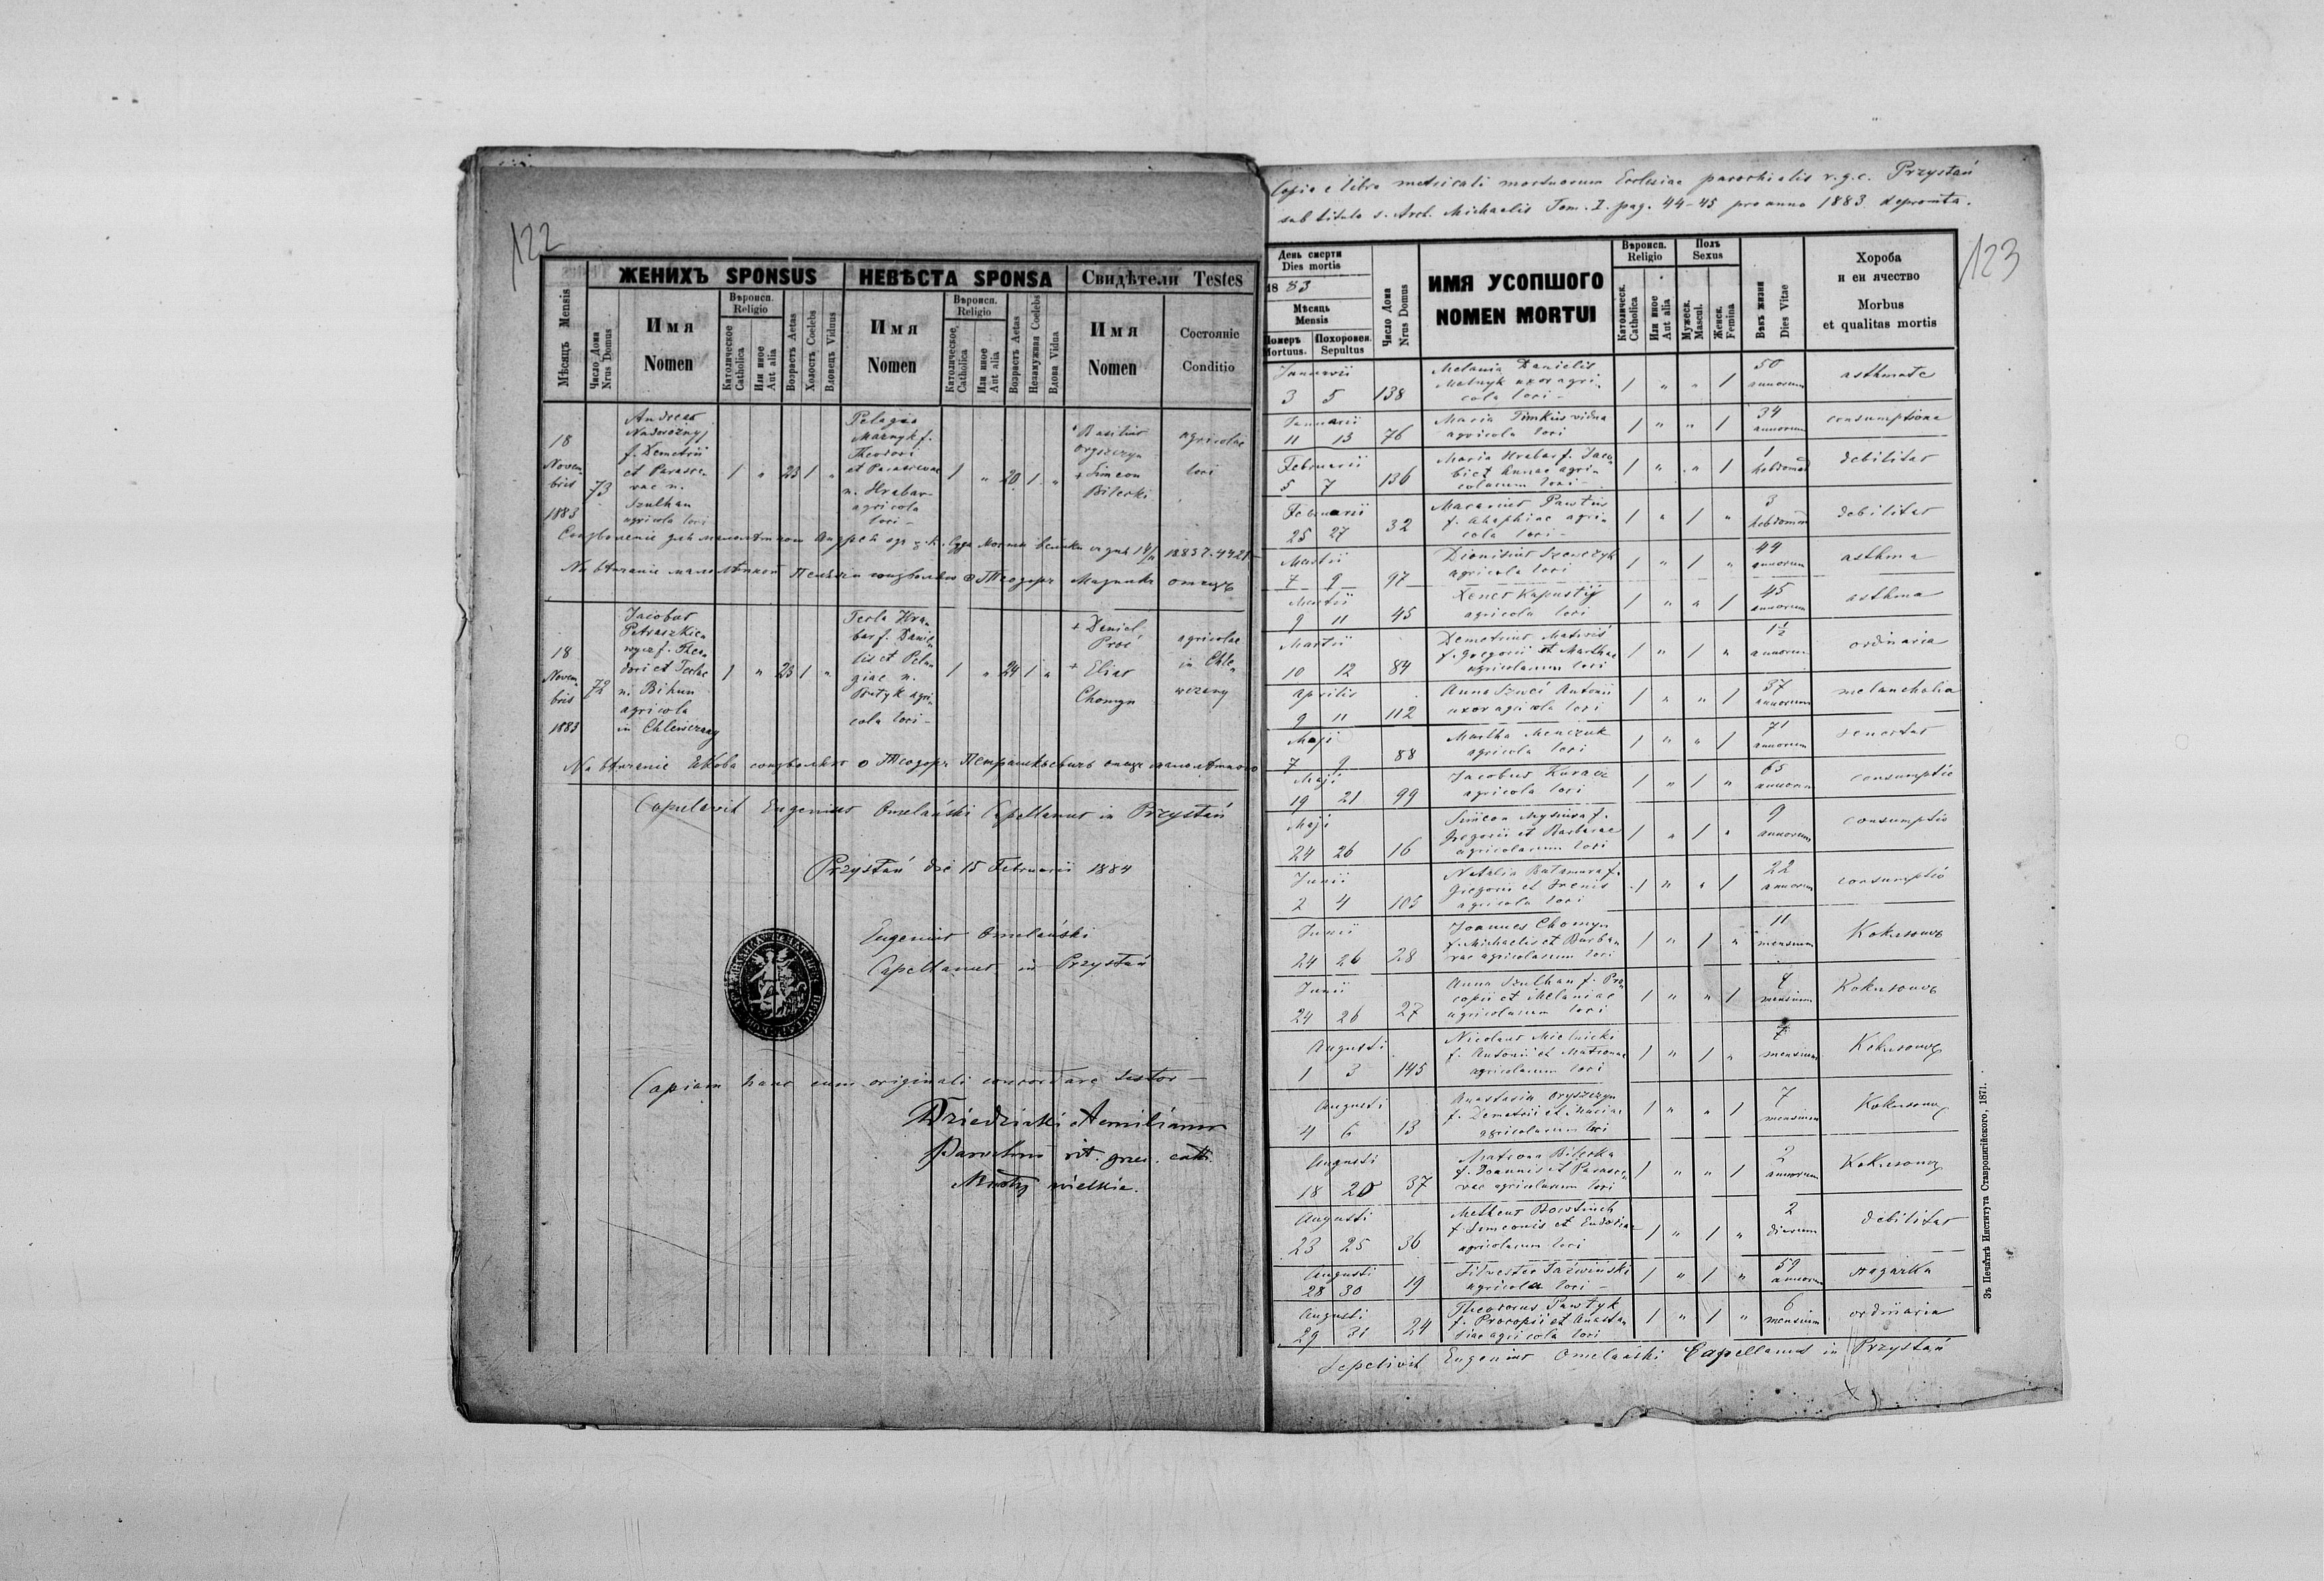 122
ЖЕНИХЪ SPONSUS
НЕВѢСТА SPONSA
Свидѣтели Testes
Мѣсяцъ Mensis
Число Дома
Nrus Domus
Имя
Nomen
Вѣроисп.
Religio
Католическое
Catholica
Или иное
Aut alia
Возрастъ Aetas
Холостъ Coelebs
Вдовецъ Viduus
Имя
Nomen
Вѣроисп.
Religio
Католическое
Catholica
Или иное
Aut alia
Возрастъ Aetas
Незамужняя Coelebs
Вдова Vidua
Имя
Nomen
Состояніе
Conditio
18
Novem-
bris
1883
73
Andreas
f. Demetrii
et Parasce-
vae n.
Szulhan
agricola loci
1 " 23 1 "
Pelagia
Maznyk f.
Theodori
et Parascevae
n. Hrabar
agricola
loci
1 " 20 1 "
+ Basilius
Oryszczyn
+ Simeon
Bilecki
agricolae
loci
18
Novem-
bris
1883
72
Jacobus
Petraszkie-
wycz f. Theo-
dori et Teclae
n. Bihun
agricola
in Chlewczany
1 " 23 1 "
Tecla Hra-
bar f. Danie-
lis et Pela-
giae n.
agri-
cola loci
1 " 24 1 "
+ Daniel
Proć
+ Elias
Chomyn
agricolae
in Chle-
wczany
Copulavit Eugenius Omelański Capellanus in Przystań
Przystań die 15 Februarii 1884
Eugenius Omelański
Capellanus in Przystań
Copiam hanc cum originali concordare testor
Dziedzicki Aemilianus
Parochus rit. graec. cath.
Mosty wielkie.
Copia e libro metricali mortuorum Ecclesiae parochialis r.g.c. Przystań
sub titulo s. Arch. Michaelis Tom. I. pag. 44-45 pro anno 1883 deprompta.
123
День смерти
Dies mortis
1883
Мѣсяць
Mensis
Померъ
Mortuus.
Похоронен.
Sepultus
Число Дома
Nrus Domus
ИМЯ УСОПШОГО
NOMEN MORTUI
Вѣроисп.
Religio
Католическ.
Catholica
Или иное
Aut alia
Полъ
Sexus
Мужеск.
Mascul.
Женск.
Femina
Вѣкъ жизни
Dies Vitae
Хороба
и еи ячество
Morbus
et qualitas mortis
Januarii
3 5 138
Melania Danielis
Melnyk uxor agri-
cola loci
1 " " 1
50
annorum
asthmate
Januarii
11 13 76
Maria Timkiw vidua
agricola loci
1 " " 1
34
annorum
consumptione
Februarii
5 7 136
Maria Hrabar f. Jaco-
bi et Annae agri-
colarum loci
1 " " 1
1
hebdomad
debilitas
Februarii
25 27 32
Macarius Pawtiuś
f. Ahaphiae agri-
cola loci
1 " 1 "
3
hebdomad
debilitas
Martii
7 9 97
Dionisius Szewczyk
agricola loci
1 " 1 "
44
annorum
asthma
Martii
9 11 45
Xenes Kapustij
agricola loci
1 " " 1
45
annorum
asthma
Martii
10 12 84
Demetrius Matwiiś
f. Gregorii et Marthae
agricolarum loci
1 " 1 "
1½
annorum
ordinaria
Aprilis
9 11 112
Anna Szweć Antonii
uxor agricola loci
1 " " 1
37
annorum
melancholia
Maji
7 9 88
Martha Menczuk
agricola loci
1 " " 1
71
annorum
senectus
Maji
19 21 99
Jacobus Kuracz
agricola loci
1 " 1 "
65
annorum
consumptio
Maji
24 26 16
Simeon Mysiura f.
Gregorii et Barbarae
agricolarum loci
1 " 1 "
9
annorum
consumptio
Junii
2 4 105
Natalia Batamara f.
Gregorii et Irenis
agricola loci
1 " " 1
22
annorum
consumptio
Junii
24 26 28
Joannes Chomyn
f. Michaelis et Barba-
rae agricolarum loci
1 " 1 "
11
mensium
Junii
24 26 27
Anna Szulhan f. Pro-
copii et Melaniae
agricolarum loci
1 " " 1
mensium
Augusti
1 3 145
Nicolaus Mielnicki
f. Antonii et Matronae
agricolarum loci
1 " 1 "
7
mensium
Augusti
4 6 13
Anastasia Oryszczyn
f. Demetrii et Mariae
agricolarum loci
1 " " 1
7
mensium
Augusti
18 20 37
Matrona Bilecka
f. Joannis et Parasce-
vae agricolarum loci
1 " " 1
2
annorum
Augusti
23 25 36
f. Simeonis et Eudosiae
agricolarum loci
1 " 1 "
2
dierum
debilitas
Augusti
28 30 19
Silvester Jaźwiński
agricola loci
1 " 1 "
59
annorum
Augusti
29 31 24
Theodorus Pawtyk
f. Procopii et Anasta-
siae agricola loci
1 " 1 "
6
mensium
ordinaria
Sepelivit Eugenius Omelański Capellanus in Przystań
Зъ Печатнѣ Института Ставропигійского, 1871.